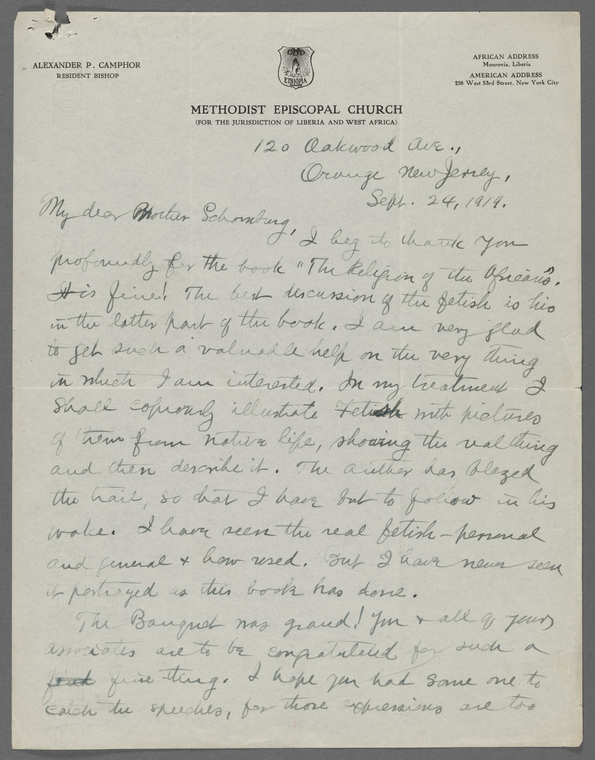 ALEXANDER P. CAMPHOR
RESIDENT BISHOP
GOD
ETHIOPIA
AFRICAN ADDRESS
Monrovia, Liberia
AMERICAN ADDRESS
256 West 53rd Street, New York City
METHODIST EPISCOPAL CHURCH
(FOR THE JURISDICTION OF LIBERIA AND WEST AFRICA)
120 Oakwood Ave.,
Orange New Jersey,
Sept. 24, 1919.
My dear Brother Schomburg,
I beg to thank you
profoundly for the book "The Religion of the Africans".
It is fine! The best discussion of the fetish is his
in the latter part of the book. I am very glad
to get such a valuable help on the very thing
in which I am interested. In my treatment I
shall copiously illustrate Fetish with pictures
of them from native life, showing the real thing
and then describe it. The author has blazed
the trail, so that I have but to follow in his
wake. I have seen the real fetish - personal
and general & how used. But I have never seen
it portrayed as this book has done.
The Banquet was grand! You & all of your
associates are to be congratulated for such a
fine thing. I hope you had some one to
catch the speeches, for those expressions are too